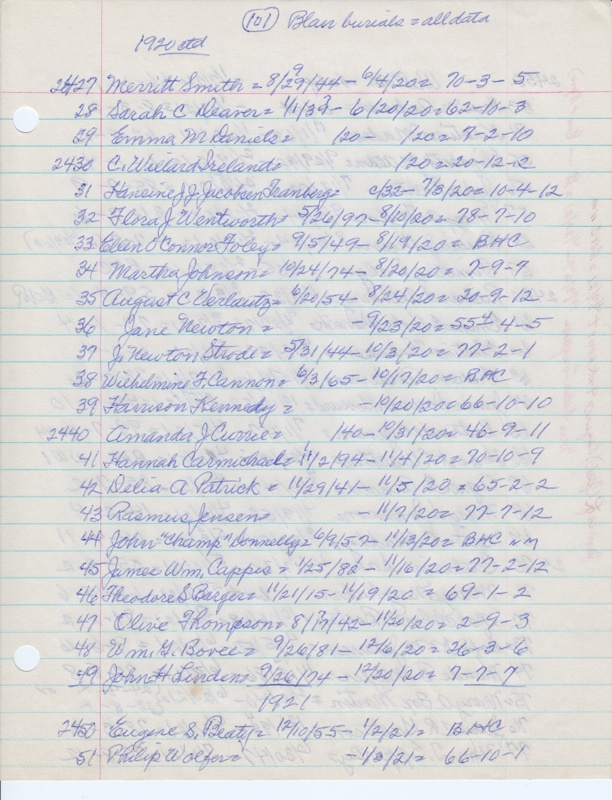 (101) Blair burials = all data
1920 ctd
2427 Merritt Smiter = 8/29/44 - 6/4/20 = 70-3-5
28 Sarah C Deaver = 1/1/33 - 6/20/20 = 62-10-3
29 Emma M Daniels = /20 - /20 = 7-2-10
2430 C. Willard Ireland = /20 = 20-12-2
31 Hansine J J Jacobsen Tranberg = c/32 - 7/3/20 = 10-4-12
32 Flora J Wentworth = 5/26/97 - 8/10/20 = 78-7-10
33 Ellen O'Connor Foley = 9/5/49 - 8/19/20 = BHC
34 Martha Johnson = 10/24/74 - 8/20/20 = 7-9-7
35 August C = 6/20/54 - 8/24/20 = 20-9-12
36 Jane Newton = - 9/23/20 = 55-4-5
37 J. Newton Strode = 5/31/44 - 10/3/20 = 77-2-1
38 Wilhelmine F. Cannon = 6/3/65 - 10/17/20 = BHC
39 Harrison Kennedy = - 10/20/20 = 66-10-10
2440 Amanda J Currie = /40 - 10/31/20 = 46-9-11
41 Hannah Carmichael = 11/2/94 - 11/4/20 = 70-10-9
42 Delia A Patrick = 11/29/41 - 11/5/20 = 65-2-2
43 Rasmus Jensen = - 11/7/20 = 77-7-12
44 John "Champ" Donnelly = 6/9/57 - 11/13/20 = BHC um
45 James Wm. Cappis = 1/25/82 - 11/16/20 = 77-2-12
46 Theodore S Barger = 11/21/15 - 11/19/20 = 69-1-2
47 Olive Thompson = 8/17/42 - 11/20/20 = 2-9-3
48 Wm. G. Bovee = 9/26/81 - 12/6/20 = 26-3-6
49 John H Linden = 9/26/74 - 12/20/20 = 7-7-7
1921 =
2450 Eugene S. Beaty = 12/10/55 - 1/2/21 = BHC
51 Philip Wolfer = - 1/3/21 = 66-10-1